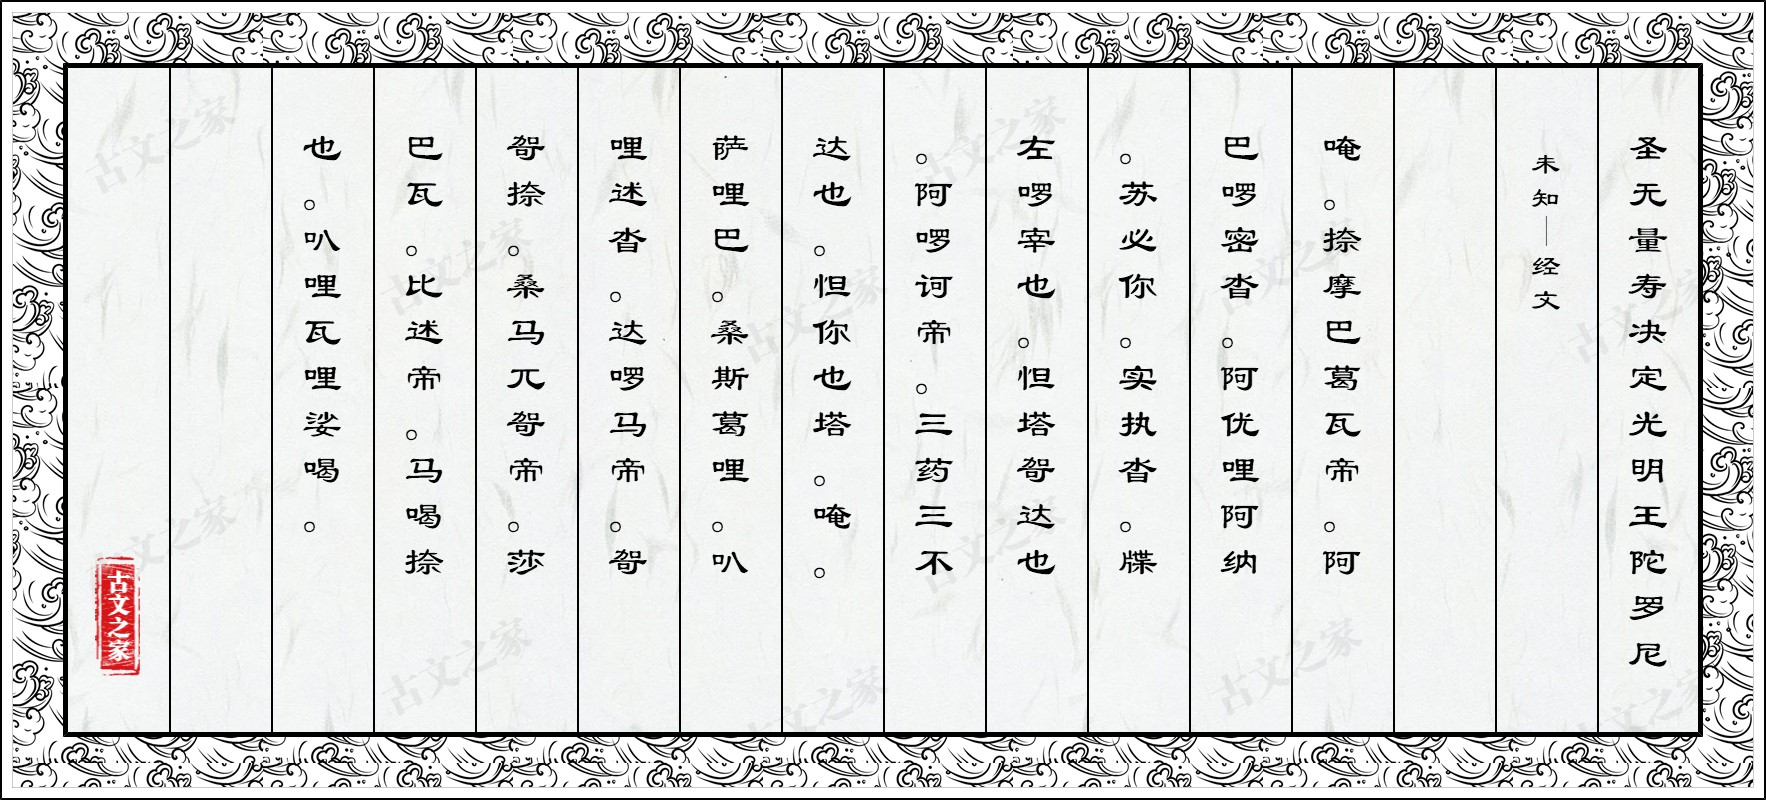 圣无量寿决定光明王陀罗尼
未知—经文
唵。捺摩巴葛瓦帝。阿
巴啰密沓。阿优哩阿纳
。苏必你。实执沓。牒
左啰宰也。怛塔哿达也
。阿啰诃帝。三药三不
达也。怛你也塔。唵。
萨哩巴。桑斯葛哩。叭
哩述沓。达啰马帝。哿
哿捺。桑马兀哿帝。莎
巴瓦。比述帝。马喝捺
也。叭哩瓦哩娑喝。
古文之家